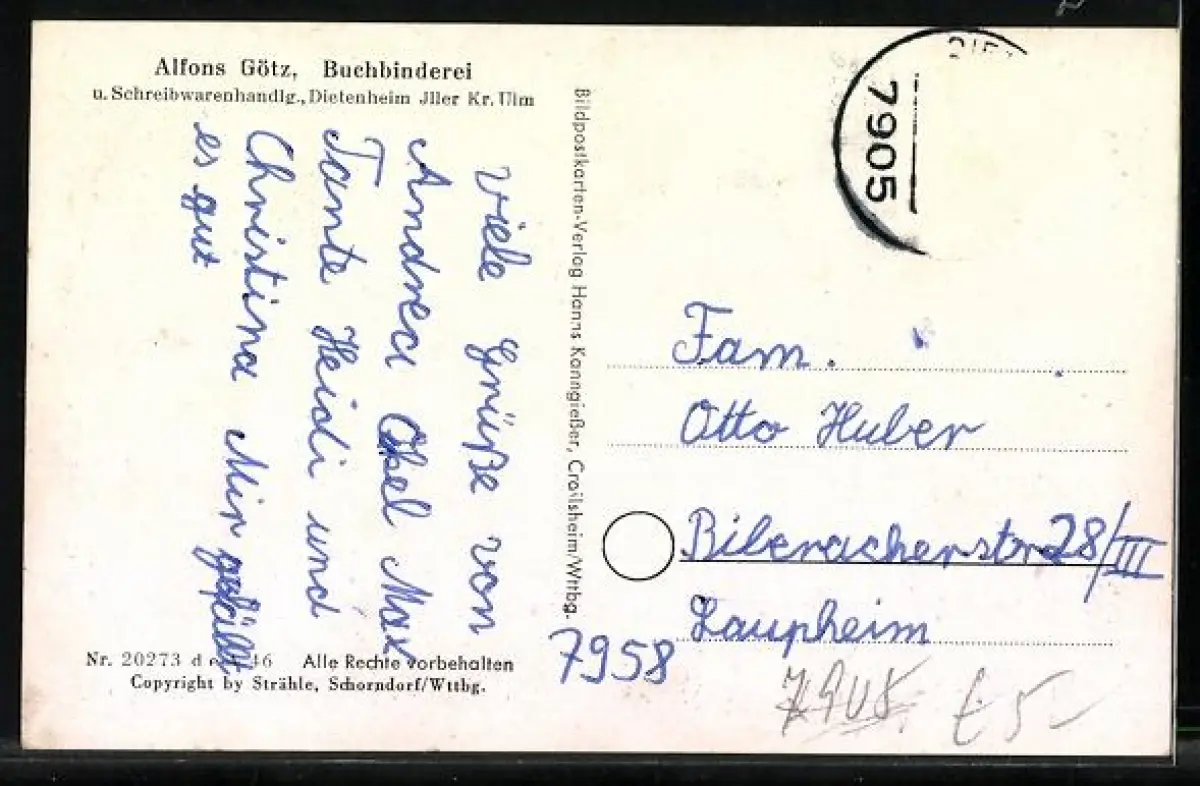 Alfons Götz, Buchbinderei
u. Schreibwarenhandlg., Dietenheim Jller Kr. Ulm
Viele Grüße von
Andrea Max
Tante Heidi und
Christina Mir gefällt
es gut
Nr. 20273 46 Alle Rechte vorbehalten
Copyright by Strähle, Schorndorf/Wttbg.
Bildpostkarten-Verlag Hanns Kanngießer, Crailsheim/Wttbg.
7905
Fam.
Otto Huber
Biberacherstr 28/III
Laupheim
7958